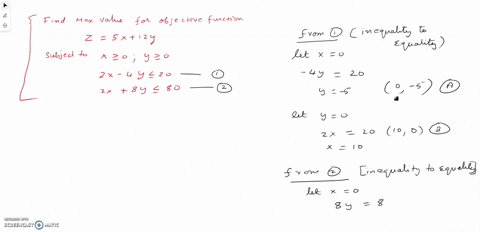 Find Max value for objective function
Z = 5x + 12y
Subject to x ≥ 0 ; y ≥ 0
2x - 4y ≤ 20 — ①
2x + 8y ≤ 80 — ②
from ① (inequality to equality)
let x = 0
-4y = 20
y = -5 (0, -5) Ⓐ
let y = 0
2x = 20 (10, 0) Ⓑ
x = 10
from ② [inequality to equality]
let x = 0
8y = 8
RECORDED WITH
SCREENCAST MATIC